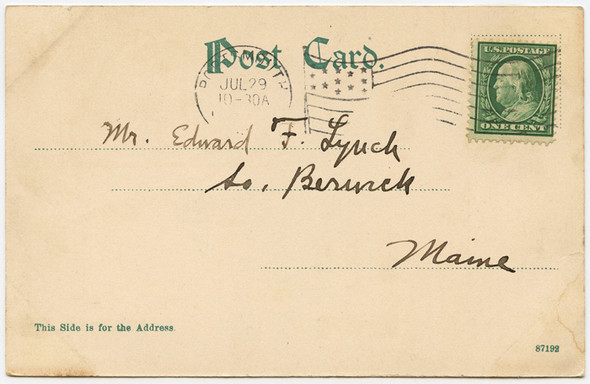 Post Card.
U.S. POSTAGE
JUL 29
10-30A
ONE CENT
Mr. Edward F. Lynch
So. Berwick
Maine
This Side is for the Address.
87192